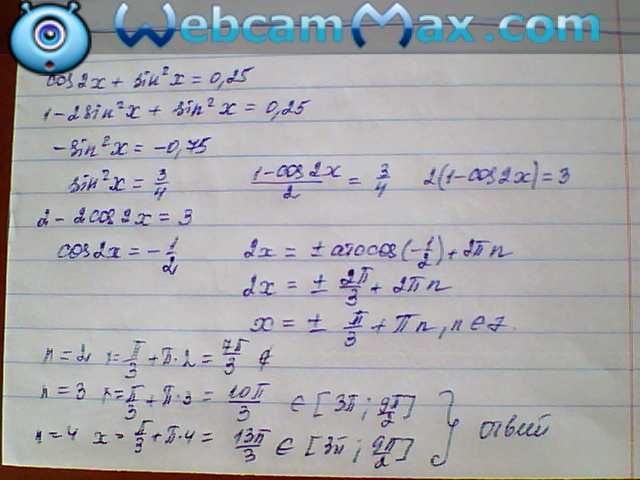 WebcamMax.com
cos2x + sin²x = 0,25
1-2sin²x + sin²x = 0,25
-sin²x = -0,75
sin²x = 3/4 (1-cos2x)/2 = 3/4 2(1-cos2x) = 3
2 - 2cos2x = 3
cos2x = -1/2 2x = ± arccos(-1/2) + 2πn
2x = ± 2π/3 + 2πn
x = ± π/3 + πn, n ∈ z.
n=2 x=π/3 + π·2 = 7π/3 ∉
n=3 x=π/3 + π·3 = 10π/3 ∈ [3π; 9π/2]
n=4 x=π/3 + π·4 = 13π/3 ∈ [3π; 9π/2] } ответ